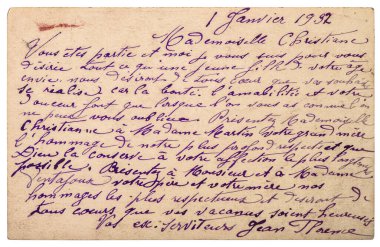 1 Janvier 1932
Mademoiselle Christiane
Vous êtes partie et moi je vous suis pour vous
désirer tout ce qu'une jeune fille de votre âge
envie. nous désirons de tout cœur que vos souhaits
se réalise. car la bonté. l'amabilité et votre
douceur font que lorsque l'on vous as connue l'on
ne peut vous oublier. Présentez Mademoiselle
Christianne à Madame Martin votre grand mère
l'hommage de notre plus profond respect et que
Dieu la conserve à votre affection le plus longtemps
possible. Présentez à Monsieur et à Madame
votre père et votre mère. nos
hommages les plus respectueux et désirons de
tous cœurs que vos vacances soient heureuses
Vos ex. Serviteurs Jean